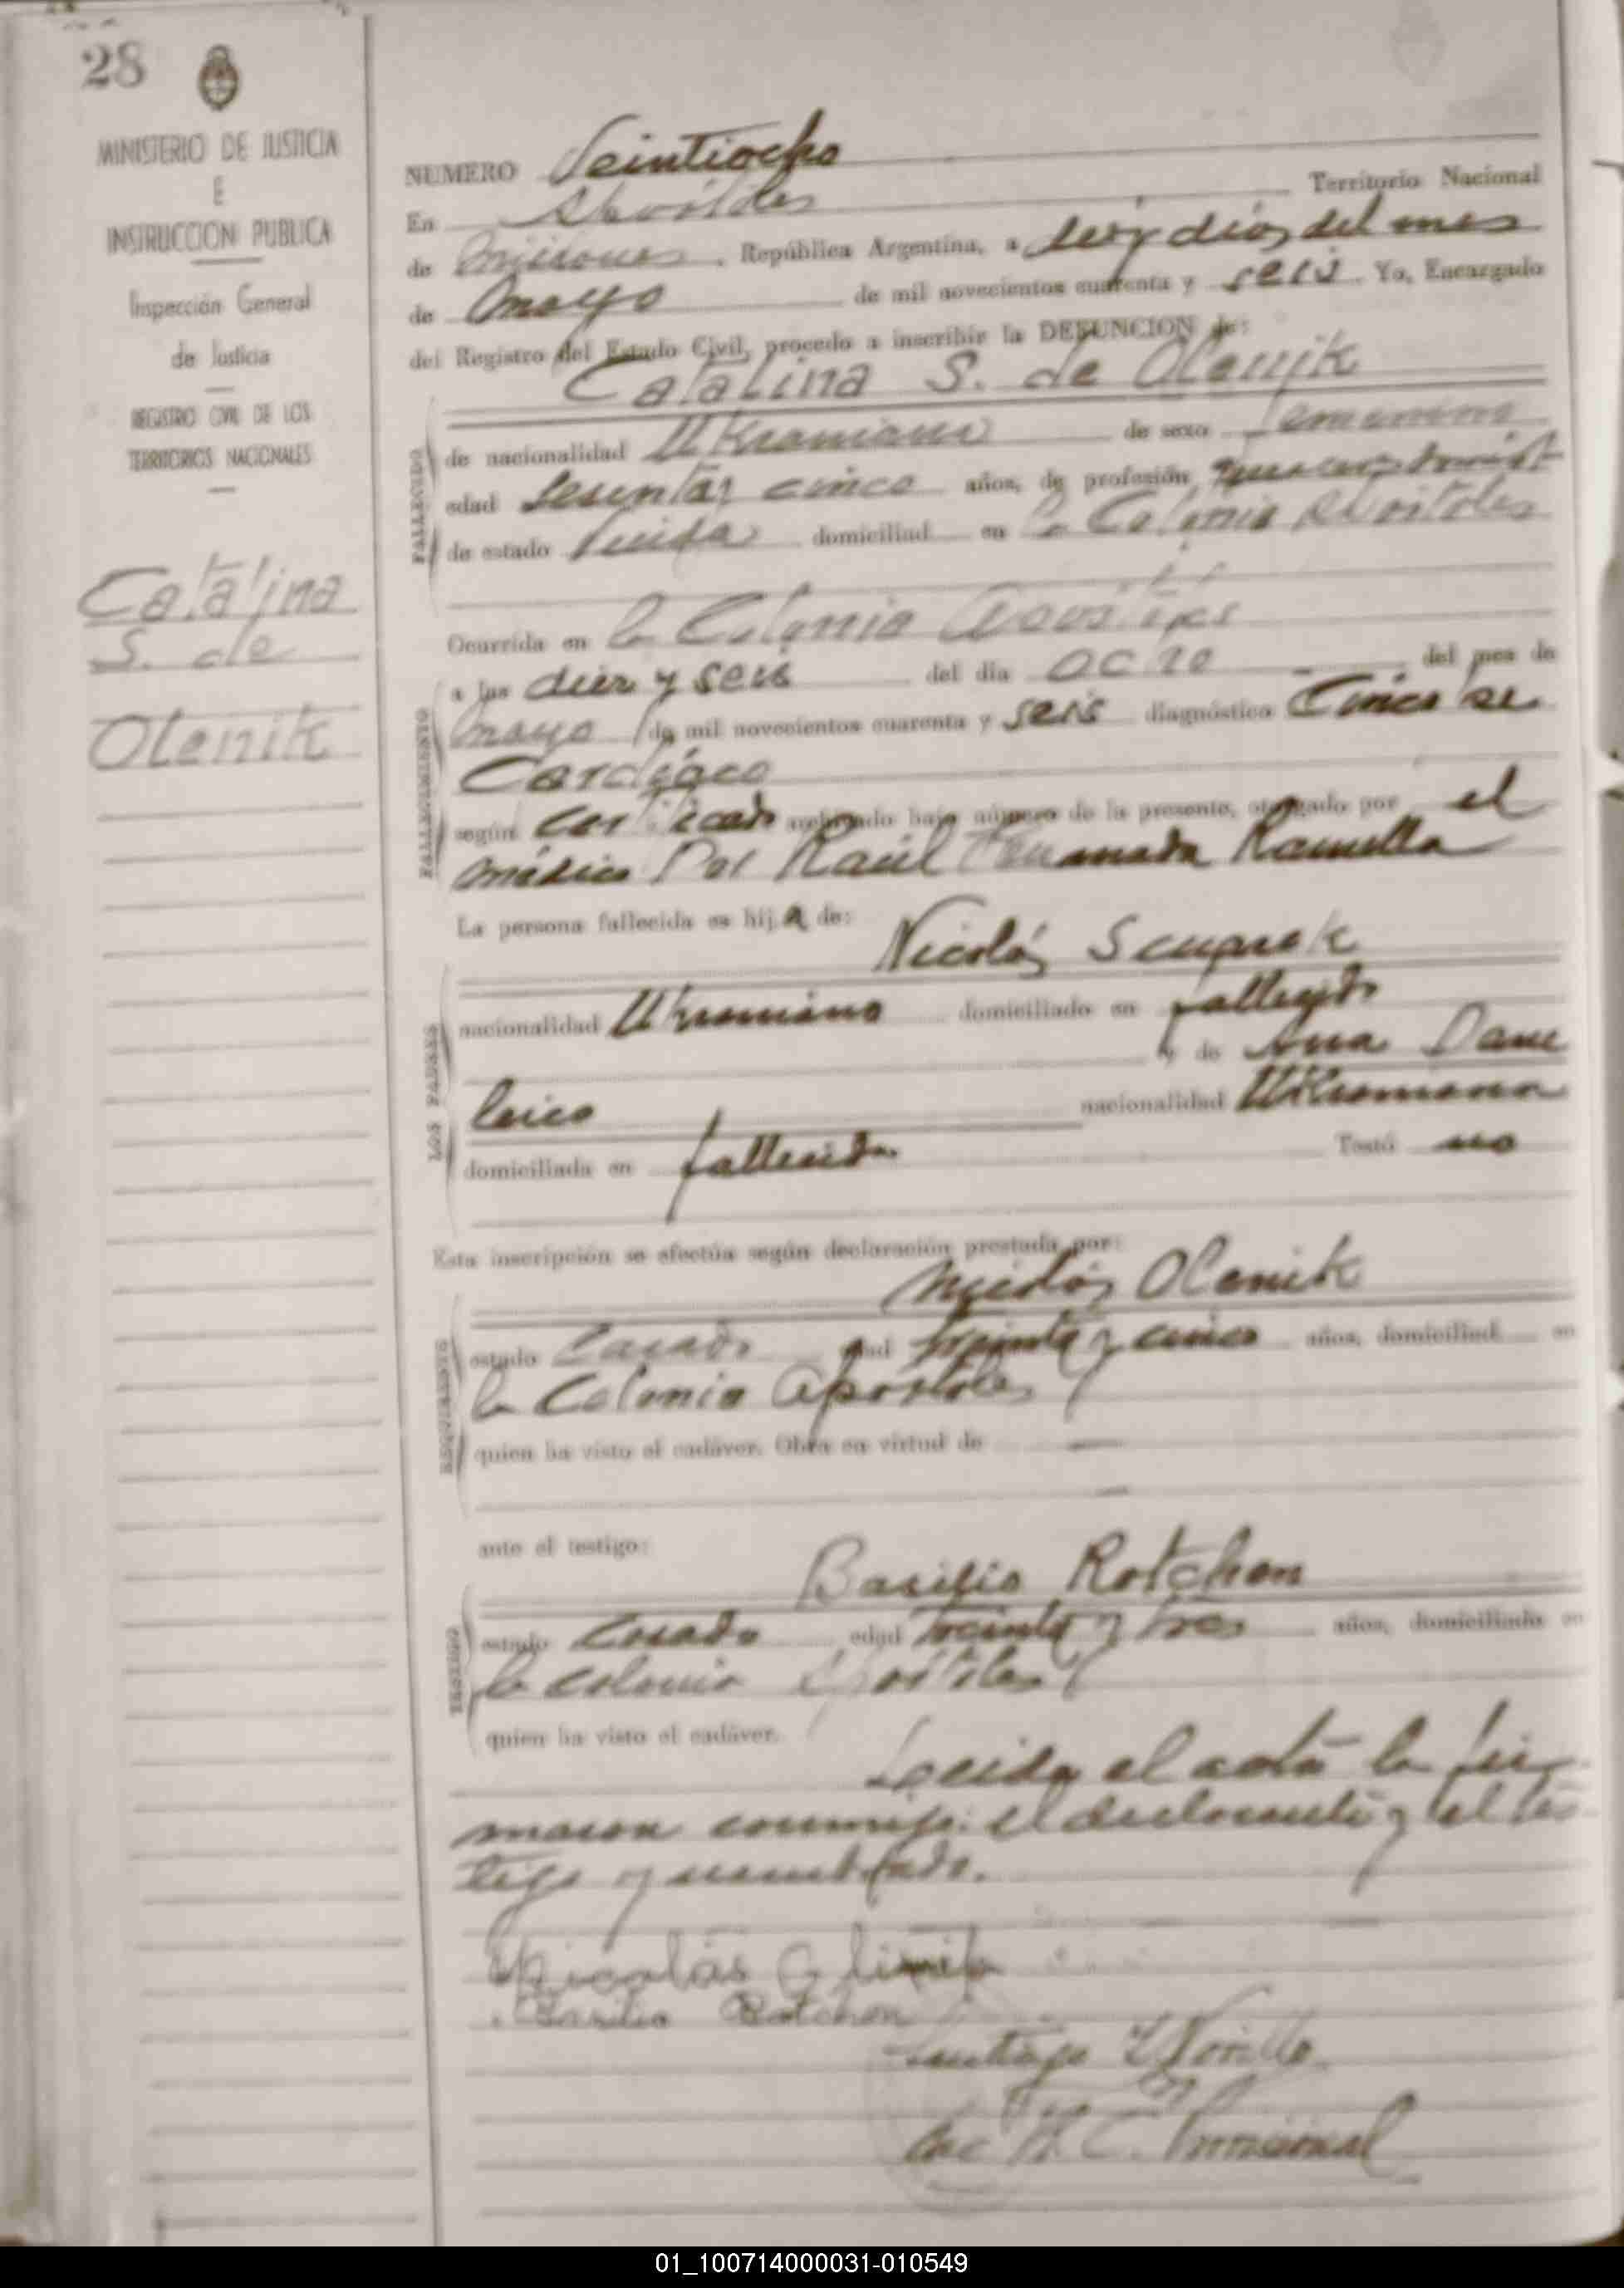 28
MINISTERIO DE JUSTICIA
E
INSTRUCCION PUBLICA
Inspección General
de Justicia
REGISTRO CIVIL DE LOS
TERRITORIOS NACIONALES
Catalina
S. de
Olenik
NUMERO Veintiocho
En Apóstoles Territorio Nacional
de Misiones, República Argentina, a días del mes
de mayo de mil novecientos cuarenta y seis. Yo, Encargado
del Registro del Estado Civil, procedo a inscribir la DEFUNCION de:
Catalina S. de Olenik
FALLECIDO
de nacionalidad Ukraniana de sexo femenino
edad sesenta y cinco años, de profesión
de estado viuda domiciliad en la Colonia Apóstoles
Ocurrida en la Colonia Apóstoles
FALLECIMIENTO
a las diez y seis del día ocho del mes de
mayo de mil novecientos cuarenta y seis diagnóstico
Cardíaco
según certificado archivado bajo número de la presente, otorgado por el
médico Dor Raúl Ramella
La persona fallecida es hija de:
Nicolás
LOS PADRES
nacionalidad Ukraniano domiciliado en fallecido
y de Ana
nacionalidad Ukraniana
domiciliada en fallecida Testó no
Esta inscripción se efectúa según declaración prestada por:
Nicolás Olenik
REQUIRENTE
estado casado edad treinta y cinco años, domiciliad en
la Colonia Apóstoles
quien ha visto el cadáver. Obra en virtud de —
ante el testigo:
Basilio Rotchen
TESTIGO
estado casado edad treinta y tres años, domiciliado en
la colonia Apóstoles
quien ha visto el cadáver.
Leida el acta la fir-
maron conmigo el declarante y el tes-
tigo nombrado.
Nicolás
Basilio Rotchen
Santiago
Enc R. C. Provisional
01_100714000031-010549